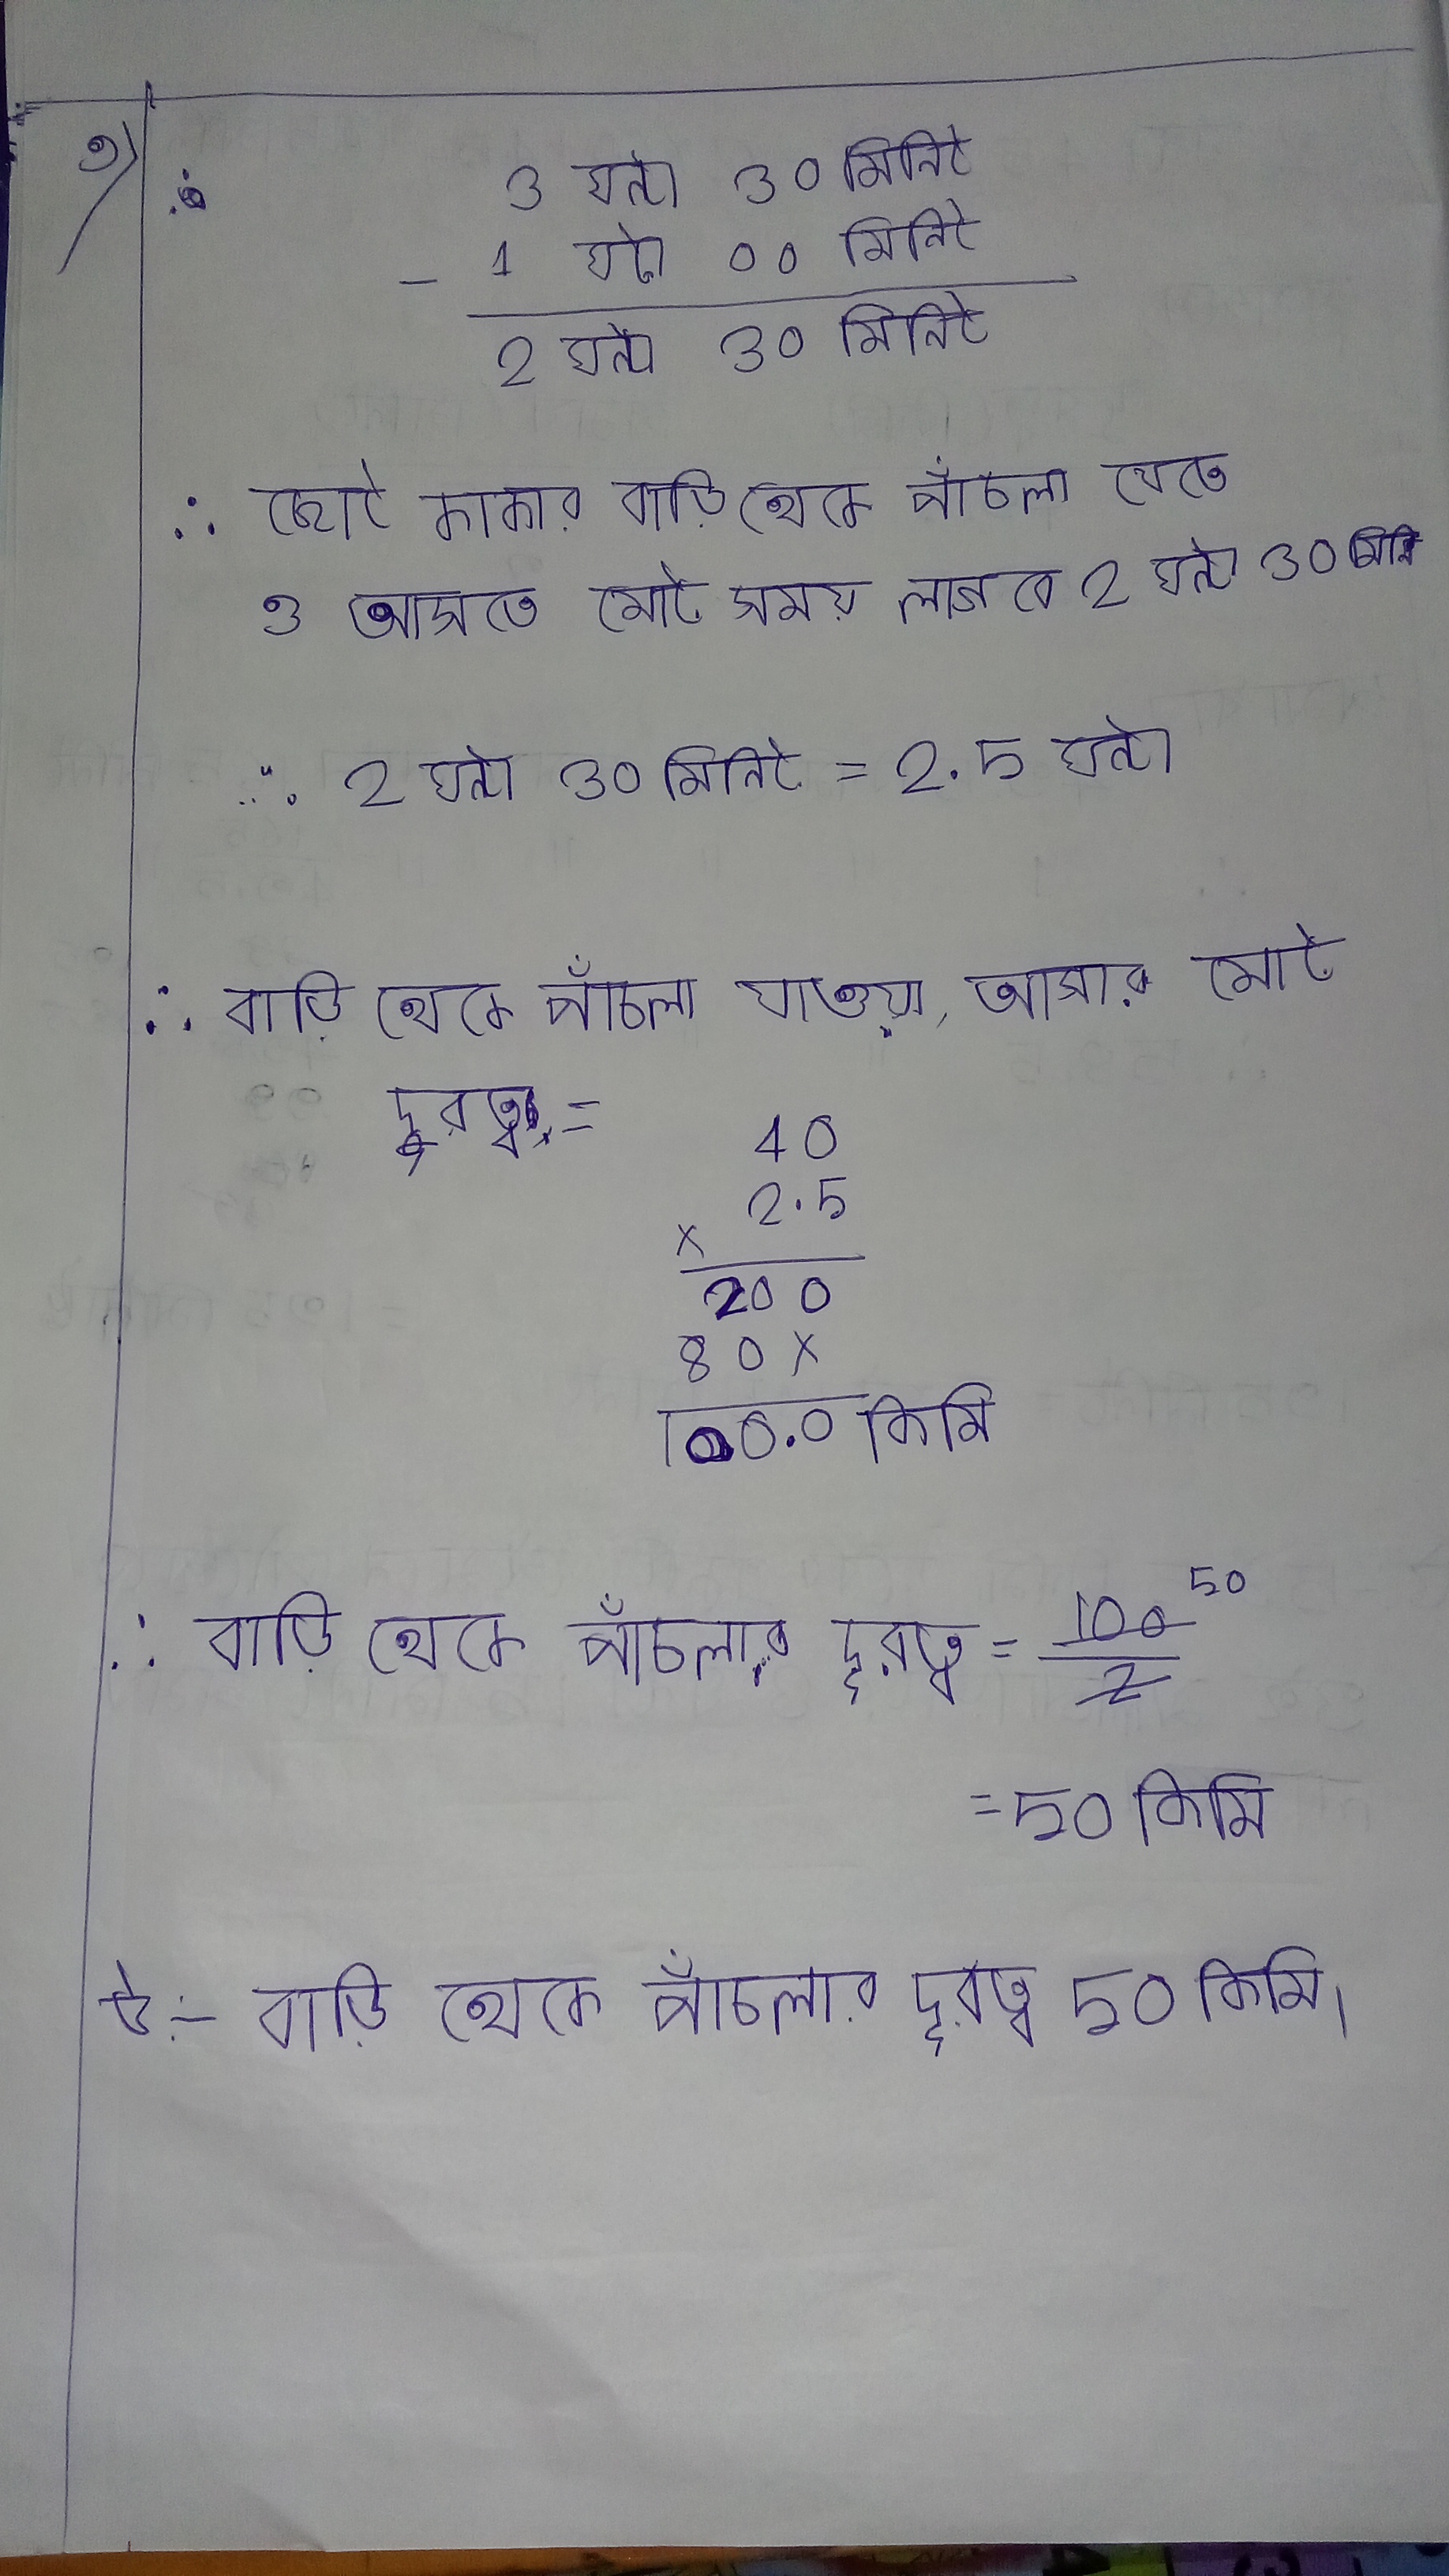 ৩)
3 ঘন্টা 30 মিনিট
- 1 ঘন্টা 00 মিনিট
2 ঘন্টা 30 মিনিট
∴ ছোট কাকার বাড়ি থেকে পাঁচলা যেতে
ও আসতে মোট সময় লাগবে 2 ঘন্টা 30 মিনি
∴ 2 ঘন্টা 30 মিনিট = 2.5 ঘন্টা
∴ বাড়ি থেকে পাঁচলা যাওয়া, আসার মোট
দূরত্ব =
40
× 2.5
200
80×
100.0 কিমি
∴ বাড়ি থেকে পাঁচলার দূরত্ব = 100/2 50
= 50 কিমি
উ:- বাড়ি থেকে পাঁচলার দূরত্ব 50 কিমি।